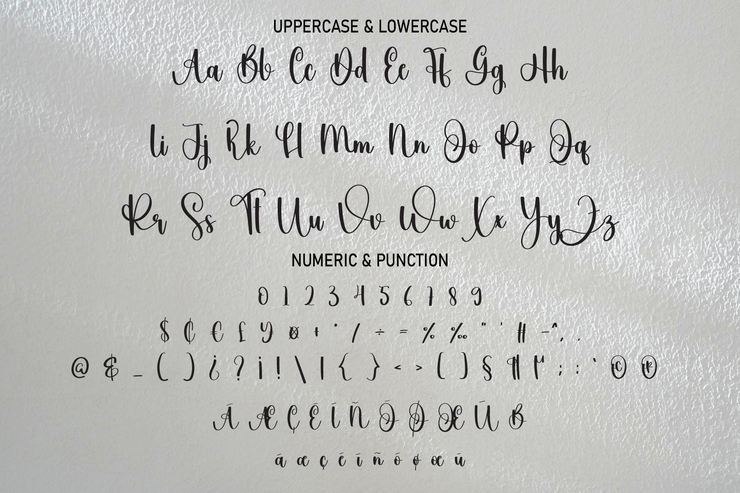 UPPERCASE & LOWERCASE
Aa Bb Cc Dd Ee Ff Gg Hh
Ii Jj Kk Ll Mm Nn Oo Pp Qq
Rr Ss Tt Uu Vv Ww Xx Yy Zz
NUMERIC & PUNCTION
0 1 2 3 4 5 6 7 8 9
$ ₵ € £ + * / ÷ = % ‰ " '
@ & _ ( ) ¿ ? ¡ ! \ | { } < > § ¶ ; : ` © ®
Æ Ç Ñ Ø Œ
æ ç ñ ø œ